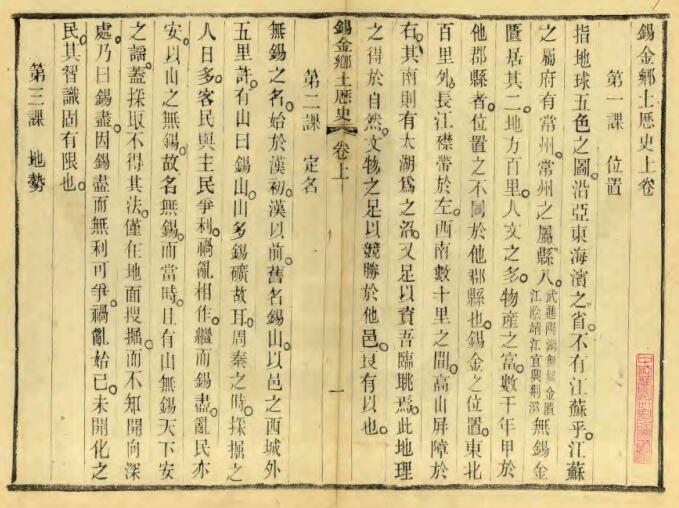 錫金鄉土歷史上卷
第一課　位置
指地球五色之圖。沿亞東海濱之省。不有江蘇乎。江蘇
之屬府有常州。常州之屬縣八。武進陽湖無錫金匱江陰靖江宜興荊溪無錫金
匱居其二。地方百里。人文之多。物產之富。數千年甲於
他郡縣者。位置之不同於他郡縣也。錫金之位置。東北
百里外。長江襟帶於左。西南數十里之間。高山屏障於
右。其南則有太湖爲之沼。又足以資吾臨眺焉。此地理
之得於自然。文物之足以競勝於他邑。良有以也。
錫金鄉土歷史　卷上　一
第二課　定名
無錫之名。始於漢初。漢以前。舊名錫山。以邑之西城外
五里許。有山曰錫山。山多錫礦故耳。周秦之時。採掘之
人日多。客民與主民爭利。禍亂相作。繼而錫盡。亂民亦
安。以山之無錫。故名無錫。而當時。且有山無錫天下安
之謠。蓋採取不得其法。僅在地面搜掘。而不知開向深
處。乃曰錫盡。因錫盡而無利可爭。禍亂始已。未開化之
民。其智識固有限也。
第三課　地勢